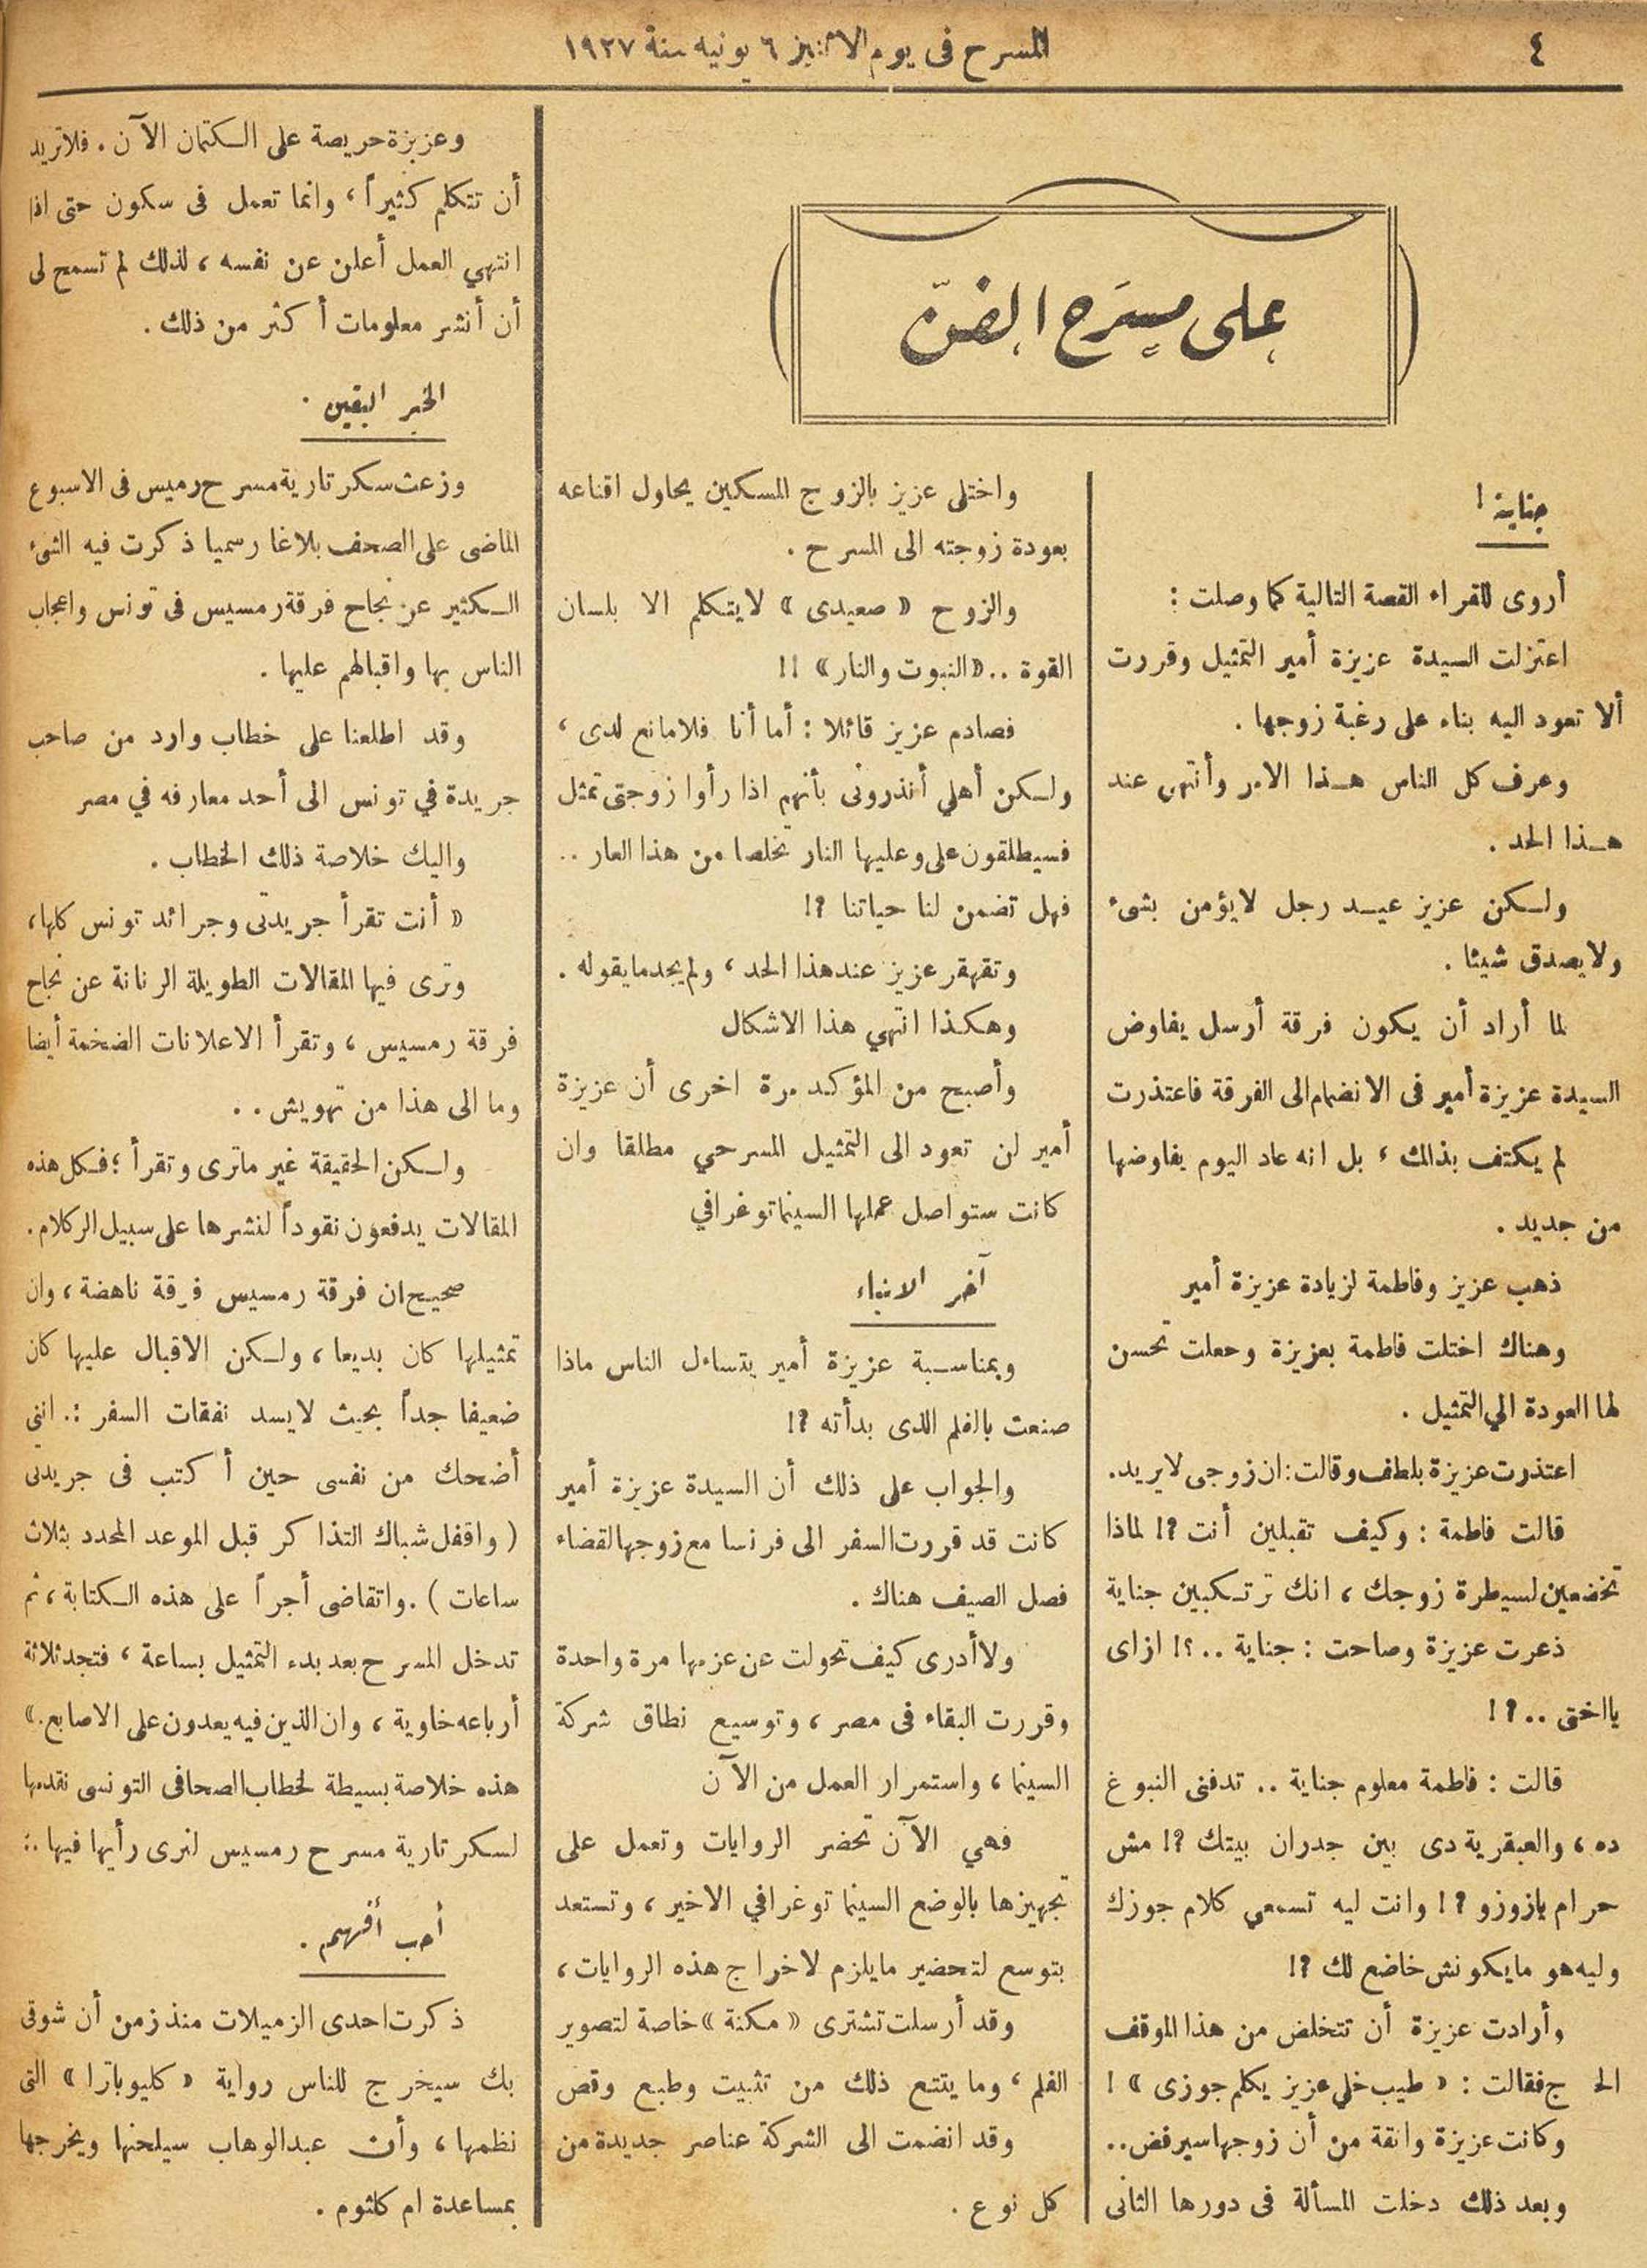 ٤
المسرح فى يوم الاثنين ٦ يونيه سنة ١٩٢٧
على مسرح الفن
جناية !
أروى للقراء القصة التالية كما وصلت :
اعتزلت السيدة عزيزة أمير التمثيل وقررت
ألا تعود اليه بناء على رغبة زوجها .
وعرف كل الناس هذا الامر وأنتهى عند
هذا الحد .
ولكن عزيز عيد رجل لايؤمن بشىء
ولا يصدق شيئا .
لما أراد أن يكون فرقة أرسل يفاوض
السيدة عزيزة أمير فى الانضمام الى الفرقة فاعتذرت
لم يكتف بذالك ، بل انه عاد اليوم يفاوضها
من جديد .
ذهب عزيز وفاطمة لزيادة عزيزة أمير
وهناك اختلت فاطمة بعزيزة وحعلت تحسن
لها العودة الي التمثيل .
اعتذرت عزيزة بلطف وقالت : ان زوجى لايريد .
قالت فاطمة : وكيف تقبلين أنت ؟! لماذا
تخضعين لسيطرة زوجك ، انك ترتكبين جناية
ذعرت عزيزة وصاحت : جناية .. ؟! ازاى
يااختى .. ؟!
قالت : فاطمة معلوم جناية .. تدفنى النبوغ
ده ، والعبقرية دى بين جدران بيتك ؟! مش
حرام يازوزو ؟! وانت ليه تسمعي كلام جوزك
وليه هو مايكونش خاضع لك ؟!
وأرادت عزيزة أن تتخلض من هذا الموقف
الح ج فقالت : « طيب خلي عزيز يكلم جوزى » !
وكانت عزيزة واثقة من أن زوجها سيرفض ..
وبعد ذلك دخلت المسألة فى دورها الثانى
واختلى عزيز بالزوج المسكين يحاول اقناعه
بعودة زوجته الى المسرح .
والزوح « صعيدى » لايتكلم الا بلسان
القوة .. « النبوت والنار » !!
فصادم عزيز قائلا : أما أنا فلا مانع لدى ،
ولكن أهلي أنذرونى بأنهم اذا رأوا زوجتى تمثل
فسيطلقون على وعليها النار تخلصا من هذا العار ..
فهل تضمن لنا حياتنا ؟!
وتقهقر عزيز عند هذا الحد ، ولم يجد مايقوله .
وهكذا انتهي هذا الاشكال
وأصبح من المؤكد مرة اخرى أن عزيزة
أمير لن تعود الى التمثيل المسرحي مطلقا وان
كانت ستواصل عملها السينماتوغرافي
آخر الانباء
وبمناسبة عزيزة أمير يتساءل الناس ماذا
صنعت بالفلم اللذى بدأته ؟!
والجواب على ذلك أن السيدة عزيزة أمير
كانت قد قررت السفر الى فرنسا مع زوجها لقضاء
فصل الصيف هناك .
ولا أدرى كيف تحولت عن عزمها مرة واحدة
وقررت البقاء فى مصر ، وتوسيع نطاق شركة
السينما ، واستمرار العمل من الآن
فهي الآن تحضر الروايات وتعمل على
تجهيزها بالوضع السينما توغرافي الاخير ، وتستعد
بتوسع لتحضير مايلزم لاخراج هذه الروايات ،
وقد أرسلت تشترى « مكنة » خاصة لتصوير
الفلم ، وما يتتع ذلك من تثبيت وطبع وقص
وقد انضمت الى الشركة عناصر جديدة من
كل نوع .
وعزيزة حريصة على الكتمان الآن . فلا تريد
أن تتكلم كثيراً ، وانما تعمل فى سكون حتى اذا
انتهي العمل أعلن عن نفسه ، لذلك لم تسمح لى
أن أنشر معلومات أكثر من ذلك .
الخبر اليقين .
وزعت سكرتارية مسرح رميس فى الاسبوع
الماضى على الصحف بلاغا رسميا ذكرت فيه الشىء
الكثير عن نجاح فرقة رمسيس فى تونس واعجاب
الناس بها واقبالهم عليها .
وقد اطلعنا على خطاب وارد من صاحب
جريدة في تونس الى أحد معارفه في مصر
واليك خلاصة ذلك الخطاب .
« أنت تقرأ جريدتى وجرائد تونس كلها ،
وترى فيها المقالات الطويلة الرنانة عن نجاح
فرقة رمسيس ، وتقرأ الاعلانات الضخمة أيضا
وما الى هذا من تهويش . .
ولكن الحقيقة غير ماترى وتقرأ ؛ فكل هذه
المقالات يدفعون نقوداً لنشرها على سبيل الركلام .
صحيح ان فرقة رمسيس فرقة ناهضة ، وان
تمثيلها كان بديعا ، ولكن الاقبال عليها كان
ضعيفا جداً بحيث لايسد نفقات السفر :. اننى
أضحك من نفسى حين أكتب فى جريدتى
( واقفل شباك التذاكر قبل الموعد المحدد بثلاث
ساعات ) . واتقاضى أجراً على هذه الكتابة ، ثم
تدخل المسرح بعد بدء التمثيل بساعة ، فتجد ثلاثة
أرباعه خاوية ، وان الذين فيه يعدون على الاصابع . »
هذه خلاصة بسيطة لخطاب الصحافى التونسى نقدمها
لسكرتارية مسرح رمسيس لنرى رأيها فيها .:
أحب أفهم .
ذكرت احدى الزميلات منذ زمن أن شوقى
بك سيخرج للناس رواية « كليوباترا » التى
نظمها ، وأن عبدالوهاب سيلحنها ويخرجها
بمساعدة ام كلثوم .